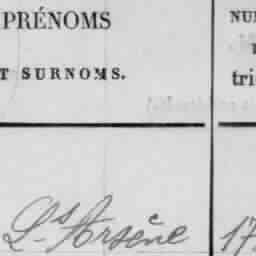 PRÉNOMS
T SURNOMS.
NU
tri
Ls Arsène
17